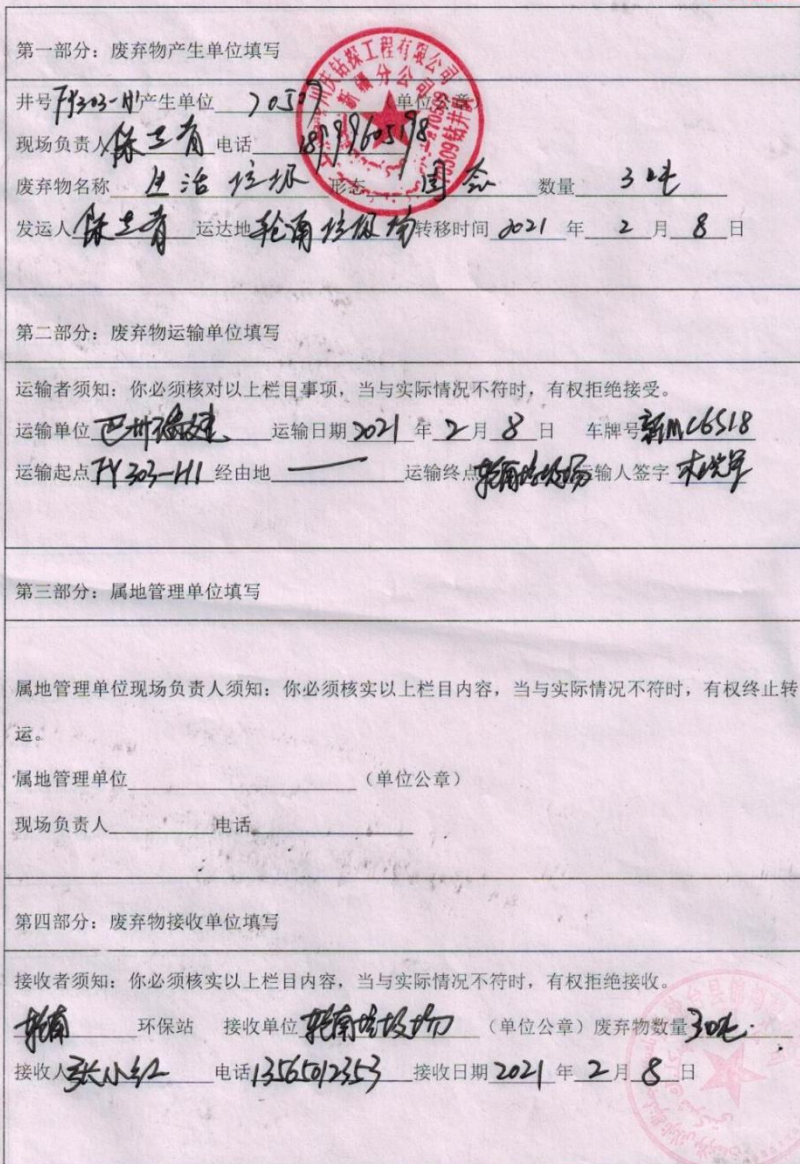 第一部分：废弃物产生单位填写
井号FY303-H1产生单位 70509 （单位公章）
现场负责人 电话
废弃物名称 生活垃圾 形态 固态 数量 30吨
发运人 运达地 轮南垃圾场 转移时间 2021 年 2 月 8 日
第二部分：废弃物运输单位填写
运输者须知：你必须核对以上栏目事项，当与实际情况不符时，有权拒绝接受。
运输单位 巴州 运输日期 2021 年 2 月 8 日 车牌号 新MC6518
运输起点 FY303-H1 经由地 — 运输终点 轮南垃圾场 运输人签字
第三部分：属地管理单位填写
属地管理单位现场负责人须知：你必须核实以上栏目内容，当与实际情况不符时，有权终止转
运。
属地管理单位 （单位公章）
现场负责人 电话
第四部分：废弃物接收单位填写
接收者须知：你必须核实以上栏目内容，当与实际情况不符时，有权拒绝接收。
轮南 环保站 接收单位 轮南垃圾场 （单位公章）废弃物数量 30吨.
接收人 张小红 电话 13565012353 接收日期 2021 年 2 月 8 日